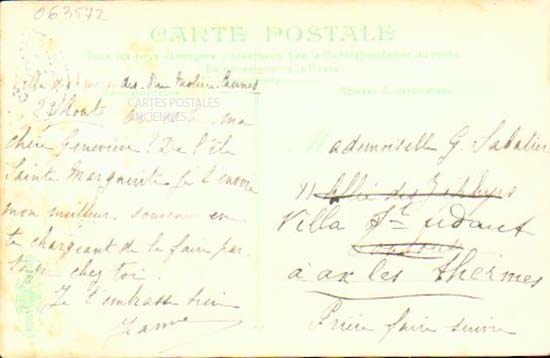 063572
CARTE POSTALE
Tous les pays étrangers n'acceptent pas la Correspondance au recto
Se renseigner à la Poste
Villa av. Cannes
29 Août
CARTES POSTALES
ANCIENNES
ma
chère Geneviève? De l'île
Sainte Marguerite je t'envoie
mon meilleur souvenir en
te chargeant de le faire par
tager chez toi.
Je t'embrasse bien
Jeanne
Mademoiselle G. Sabatier
11 Allée des Zéphyrs
Villa
à ax les thermes
Prière faire suivre